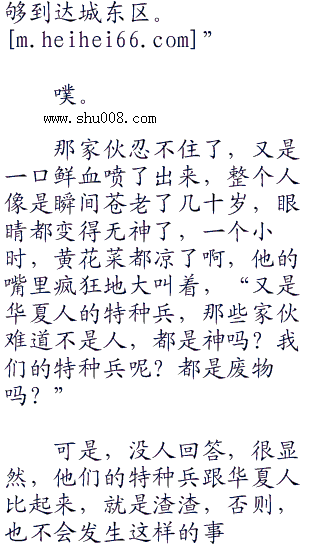 够到达城东区。
[m.heihei66.com]”
噗。
www.shu008.com
那家伙忍不住了，又是
一口鲜血喷了出来，整个人
像是瞬间苍老了几十岁，眼
睛都变得无神了，一个小
时，黄花菜都凉了啊，他的
嘴里疯狂地大叫着，“又是
华夏人的特种兵，那些家伙
难道不是人，都是神吗？我
们的特种兵呢？都是废物
吗？”
可是，没人回答，很显
然，他们的特种兵跟华夏人
比起来，就是渣渣，否则，
也不会发生这样的事